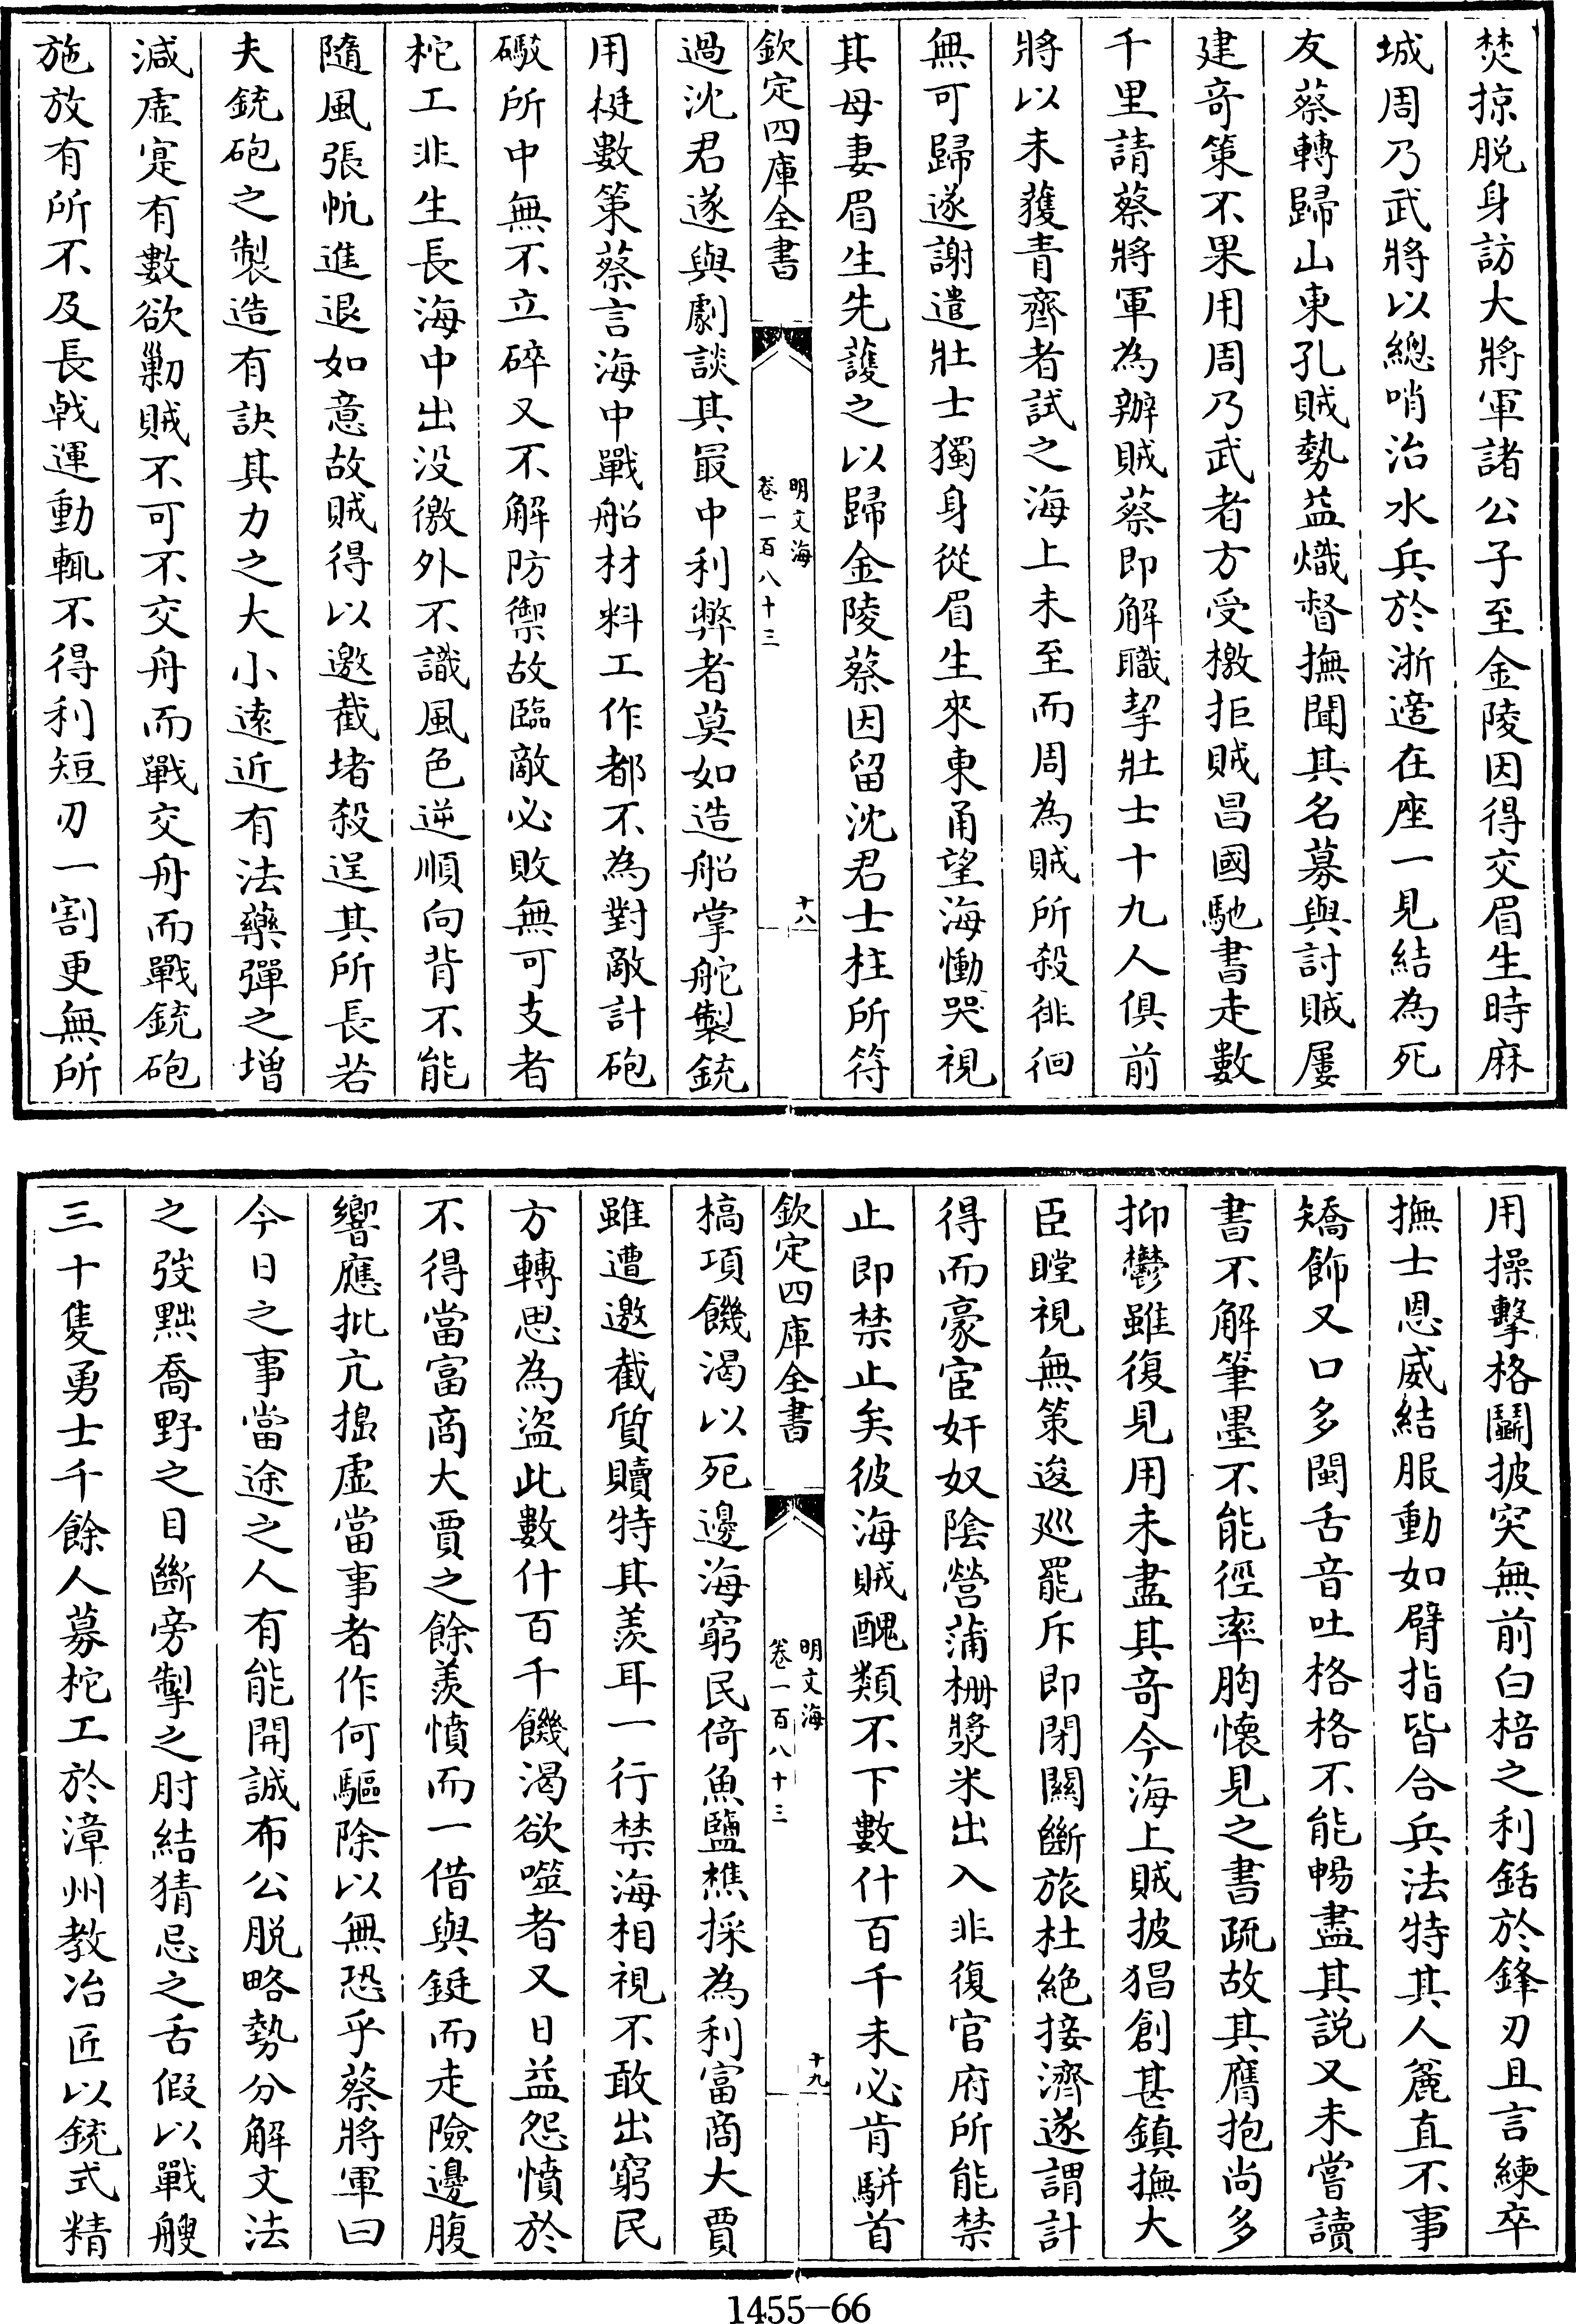 焚掠脱身訪大將軍諸公子至金陵因得交眉生時麻
城周乃武將以總哨治水兵於浙適在座一見結為死
友蔡轉歸山東孔賊勢益熾督撫聞其名募與討賊屢
建竒策不果用周乃武者方受檄拒賊昌國馳書走數
千里請蔡將軍為辦賊蔡即解職挈壯士十九人俱前
將以未獲青齊者試之海上未至而周為賊所殺徘徊
無可歸遂謝遣壯士獨身從眉生來東甬望海慟哭視
其母妻眉生先護之以歸金陵蔡因留沈君士柱所符
欽定四庫全書
明文海
卷一百八十三
十八
過沈君遂與劇談其最中利弊者莫如造船掌舵製銃
用梃數策蔡言海中戰船材料工作都不為對敵計砲
礮所中無不立碎又不解防禦故臨敵必敗無可支者
柁工非生長海中出没徼外不識風色逆順向背不能
隨風張帆進退如意故賊得以邀截堵殺逞其所長若
夫銃砲之製造有訣其力之大小逺近有法藥彈之增
減虚寔有數欲勦賊不可不交舟而戰交舟而戰銃砲
施放有所不及長戟運動輒不得利短刃一割更無所
用操擊格鬭披突無前白棓之利銛於鋒刃且言練卒
撫士恩威結服動如臂指皆合兵法特其人麄直不事
矯飾又口多閩舌音吐格格不能暢盡其説又未嘗讀
書不解筆墨不能徑率胸懷見之書疏故其膺抱尚多
抑鬱雖復見用未盡其竒今海上賊披猖創甚鎮撫大
臣瞠視無策逡巡罷斥即閉關斷旅杜絶接濟遂謂計
得而豪宦奸奴陰營蒲柵漿米出入非復官府所能禁
止即禁止矣彼海賊醜類不下數什百千未必肯駢首
欽定四庫全書
明文海
卷一百八十三
十九
槁項饑渇以死邊海窮民倚魚鹽樵採為利富商大賈
雖遭邀截質贖特其羨耳一行禁海相視不敢出窮民
方轉思為盜此數什百千饑渇欲噬者又日益怨憤於
不得當富商大賈之餘羨憤而一借與鋌而走險邊腹
響應批亢搗虚當事者作何驅除以無恐乎蔡將軍曰
今日之事當途之人有能開誠布公脱略勢分解文法
之弢黙喬野之目斷旁掣之肘結猜忌之舌假以戰艘
三十隻勇士千餘人募柁工於漳州教冶匠以銃式精
1455-66